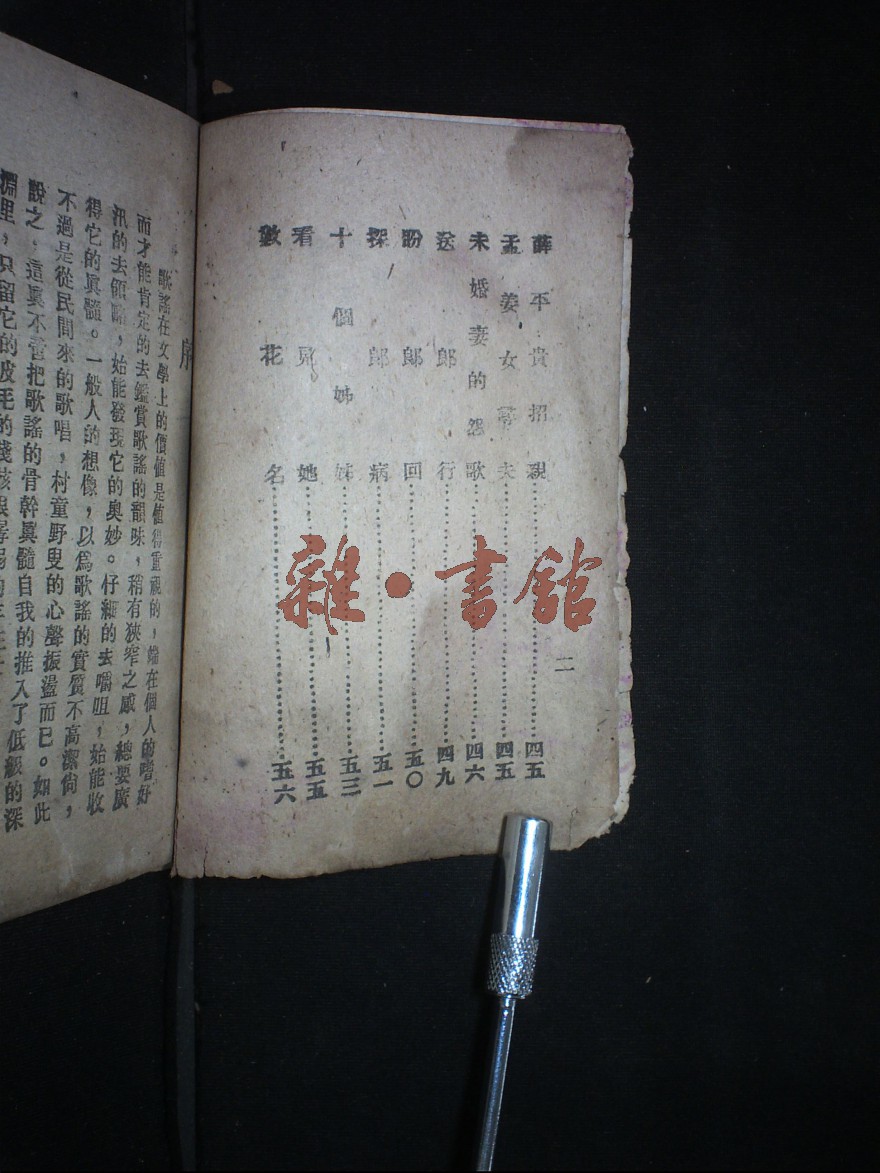 二
薛平貴招親………四五
孟姜女尋夫………四五
未婚妻的怨歌………四六
送郎行………四九
盼郎回………五〇
探郎病………五一
十個姊妹………五三
看見她………五五
數花名………五六
雜·書館
序
歌謠在文學上的價值是值得重視的，端在個人的嗜好
而才能肯定的去鑑賞歌謠的韻味，稍有狹窄之感，總要廣
汎的去領略，始能發現它的奧妙。仔細的去嚼咀，始能收
得它的眞髓。一般人的想像，以爲歌謠的實質不高潔尙，
不過是從民間來的歌唱，村童野叟的心聲振盪而已。如此
說之，這眞不啻把歌謠的骨幹眞髓自我的推入了低級的深
淵里，只留它的皮毛的殘骸